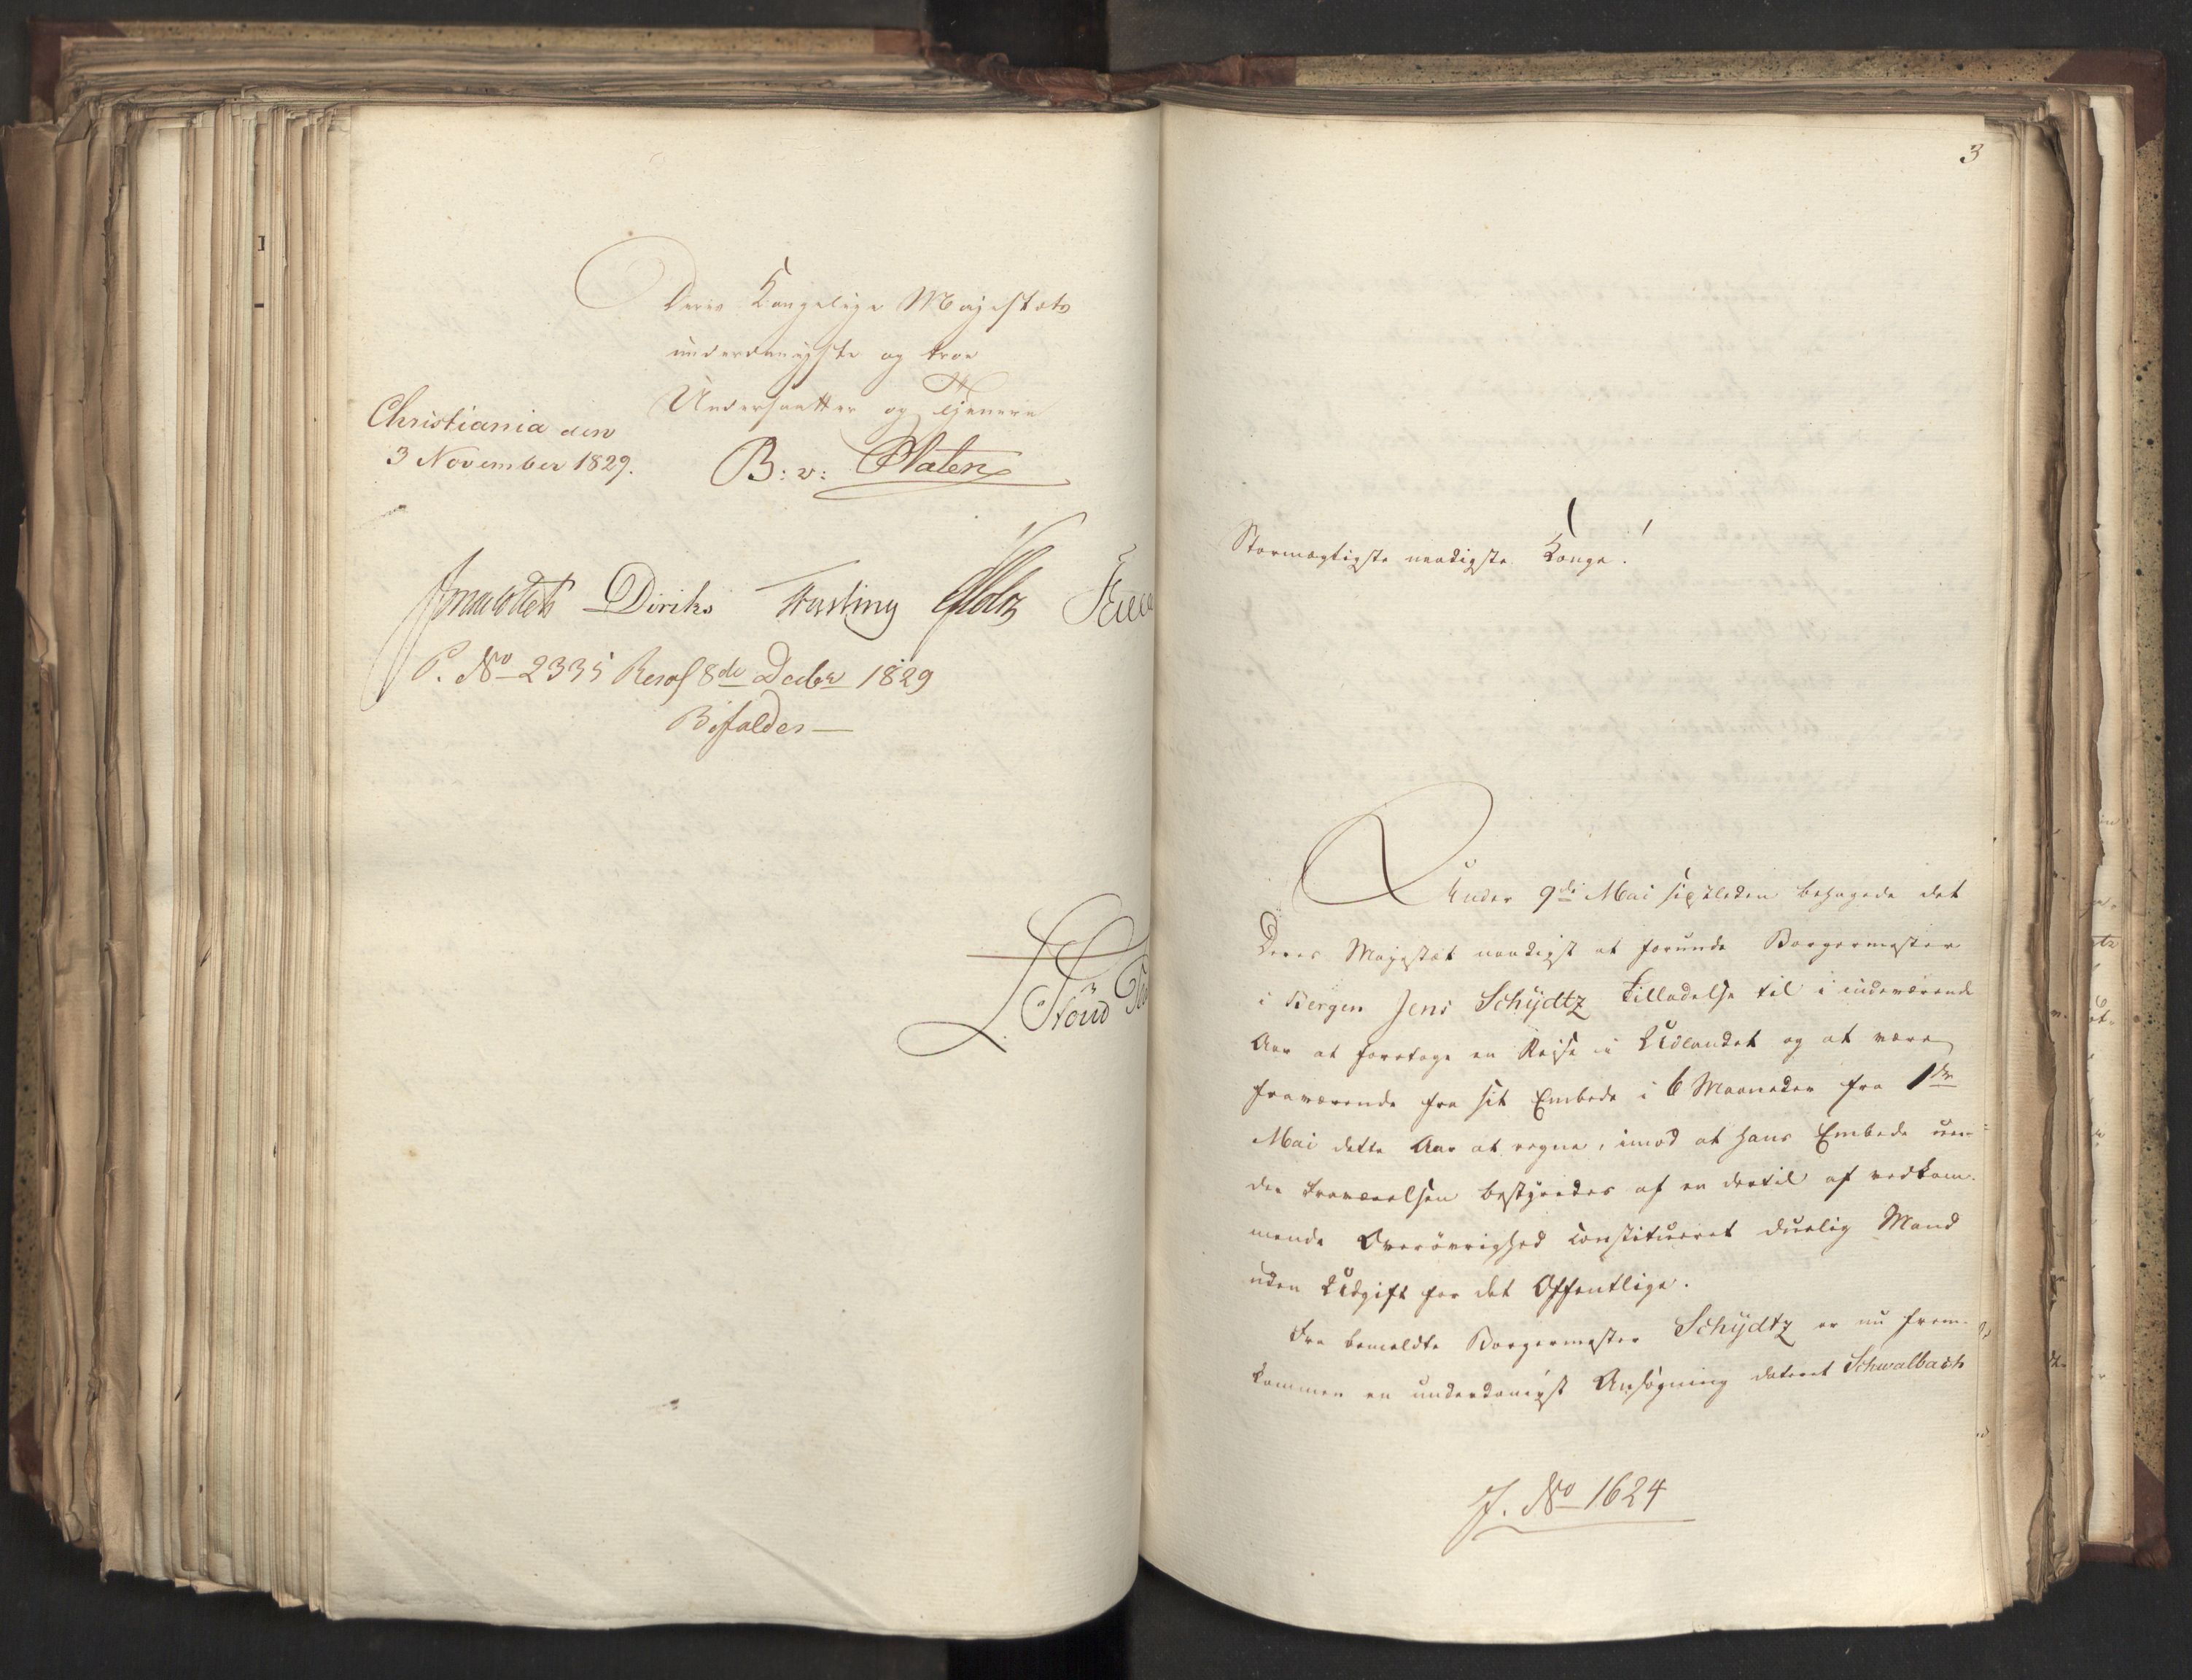 Deres Kongelige Majestæts
underdanigste og troe
Undersaatter og Tjenere
Christiania den
3 November 1829.
B: v: Platen
Diriks Fasting Holst
P. No 2335 Resol 8de Decbr 1829
Bifaldes—
3
Stormægtigste naadigste Konge!
Under 9de Mai sidstleden behagede det
Deres Majestæt naadigst at forunde Borgermester
i Bergen Jens Schydtz Tilladelse til i indeværende
Aar at foretage en Reise i Udlandet og at være
fraværende fra sit Embede i 6 Maaneder fra 1ste
Mai dette Aar at regne, imod at hans Embede un-
der Fraværelsen bestyredes af en dertil af vedkom-
mende Overøvrighed constitueret duelig Mand
uden Udgift for det Offentlige.
Fra bemeldte Borgermester Schydtz er nu frem-
kommen en underdanigst Ansøgning dateret Schwalbach
J. No 1624